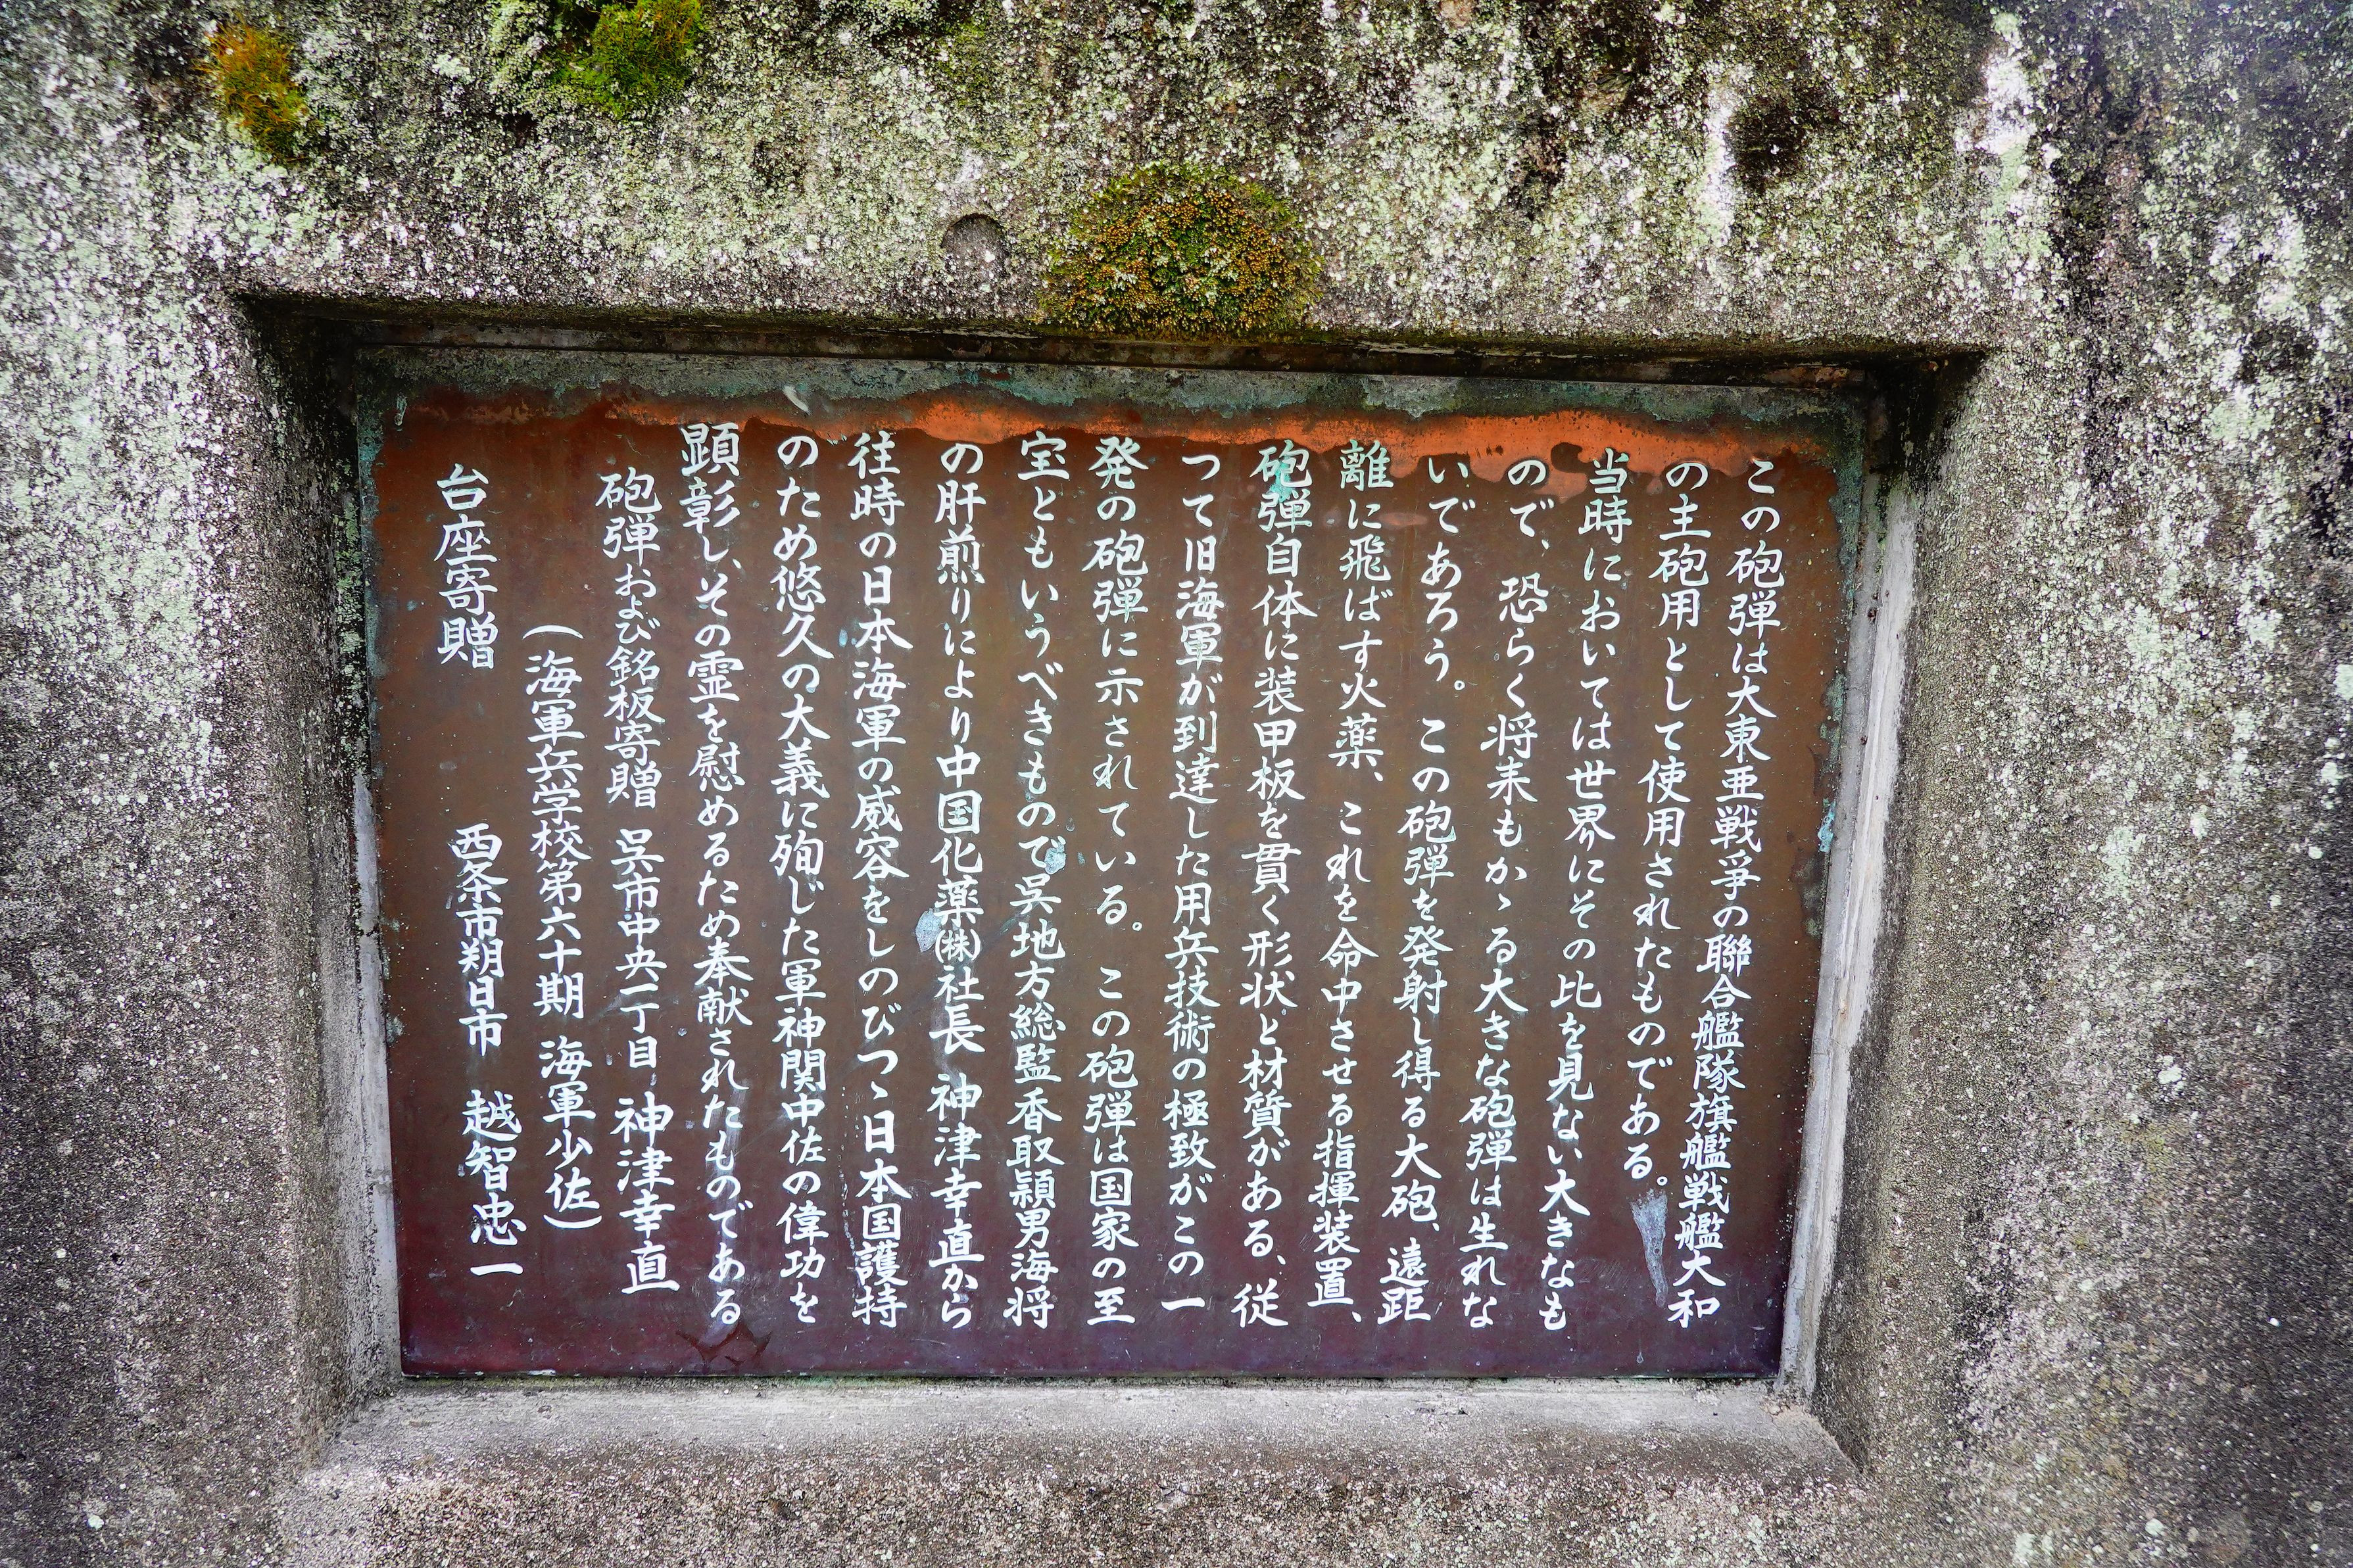 この砲弾は大東亜戦爭の聯合艦隊旗艦戦艦大和
の主砲用として使用されたものである。
当時においては世界にその比を見ない大きなも
ので、恐らく将来もかゝる大きな砲弾は生れな
いであろう。この砲弾を発射し得る大砲、遠距
離に飛ばす火薬、これを命中させる指揮装置、
砲弾自体に装甲板を貫く形状と材質がある、従
つて旧海軍が到達した用兵技術の極致がこの一
発の砲弾に示されている。この砲弾は国家の至
宝ともいうべきもので呉地方総監香取頴男海将
の肝煎りにより中国化薬㈱社長 神津幸直から
往時の日本海軍の威容をしのびつゝ日本国護持
のため悠久の大義に殉じた軍神関中佐の偉功を
顕彰し、その霊を慰めるため奉献されたものである
砲弾および銘板寄贈 呉市中央一丁目 神津幸直
(海軍兵学校第六十期 海軍少佐)
台座寄贈 西条市朔日市 越智忠一